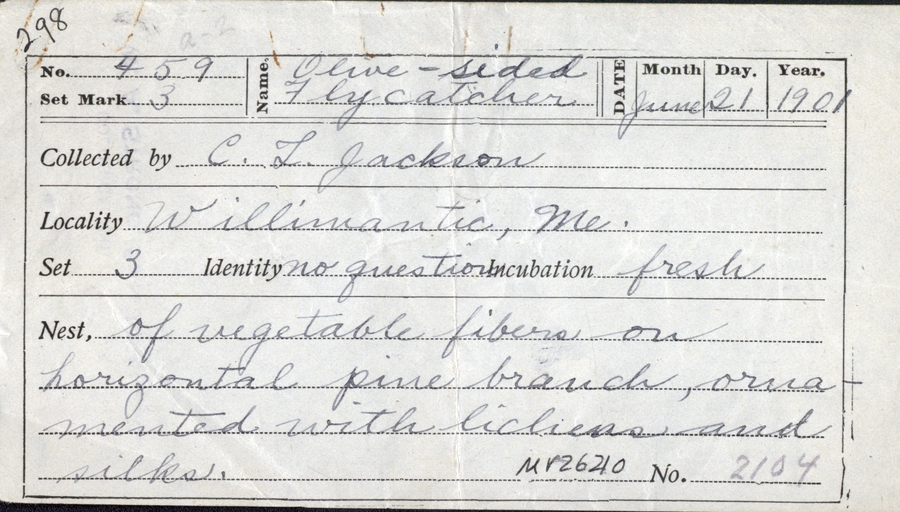 298
No. 459 Name. Olive-sided DATE Month Day. Year.
Set Mark 3 Flycatcher June 21 1901
Collected by C. L. Jackson
Locality Willimantic, Me.
Set 3 Identity no question Incubation fresh
Nest, of vegetable fibers on
horizontal pine branch, orna-
mented with lichens and
silks.
No. 2104